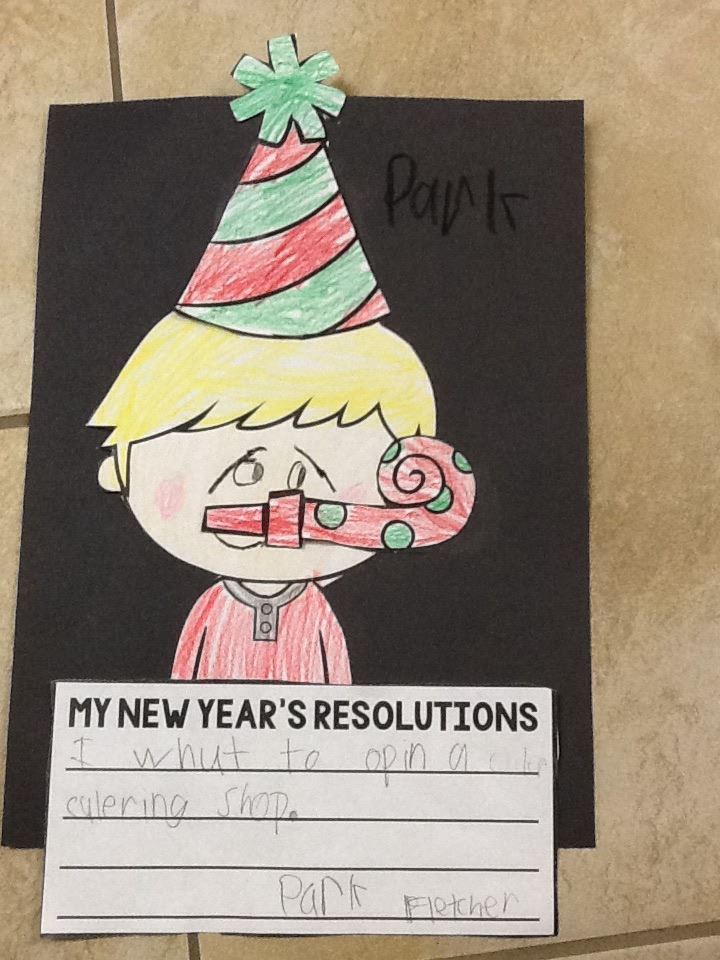 Park
MY NEW YEAR'S RESOLUTIONS
I whut to opin a
culering shop.
Park Fletcher